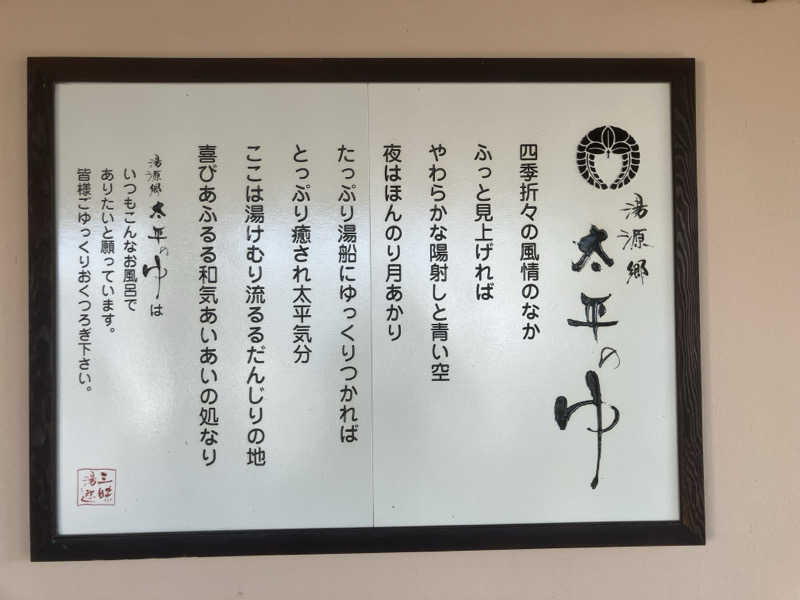 湯源郷
太平のゆ
四季折々の風情のなか
ふっと見上げれば
やわらかな陽射しと青い空
夜はほんのり月あかり
たっぷり湯船にゆっくりつかれば
とっぷり癒され太平気分
ここは湯けむり流るるだんじりの地
喜びあふるる和気あいあいの処なり
湯源郷 太平のゆ は
いつもこんなお風呂で
ありたいと願っています。
皆様ごゆっくりおくつろぎ下さい。